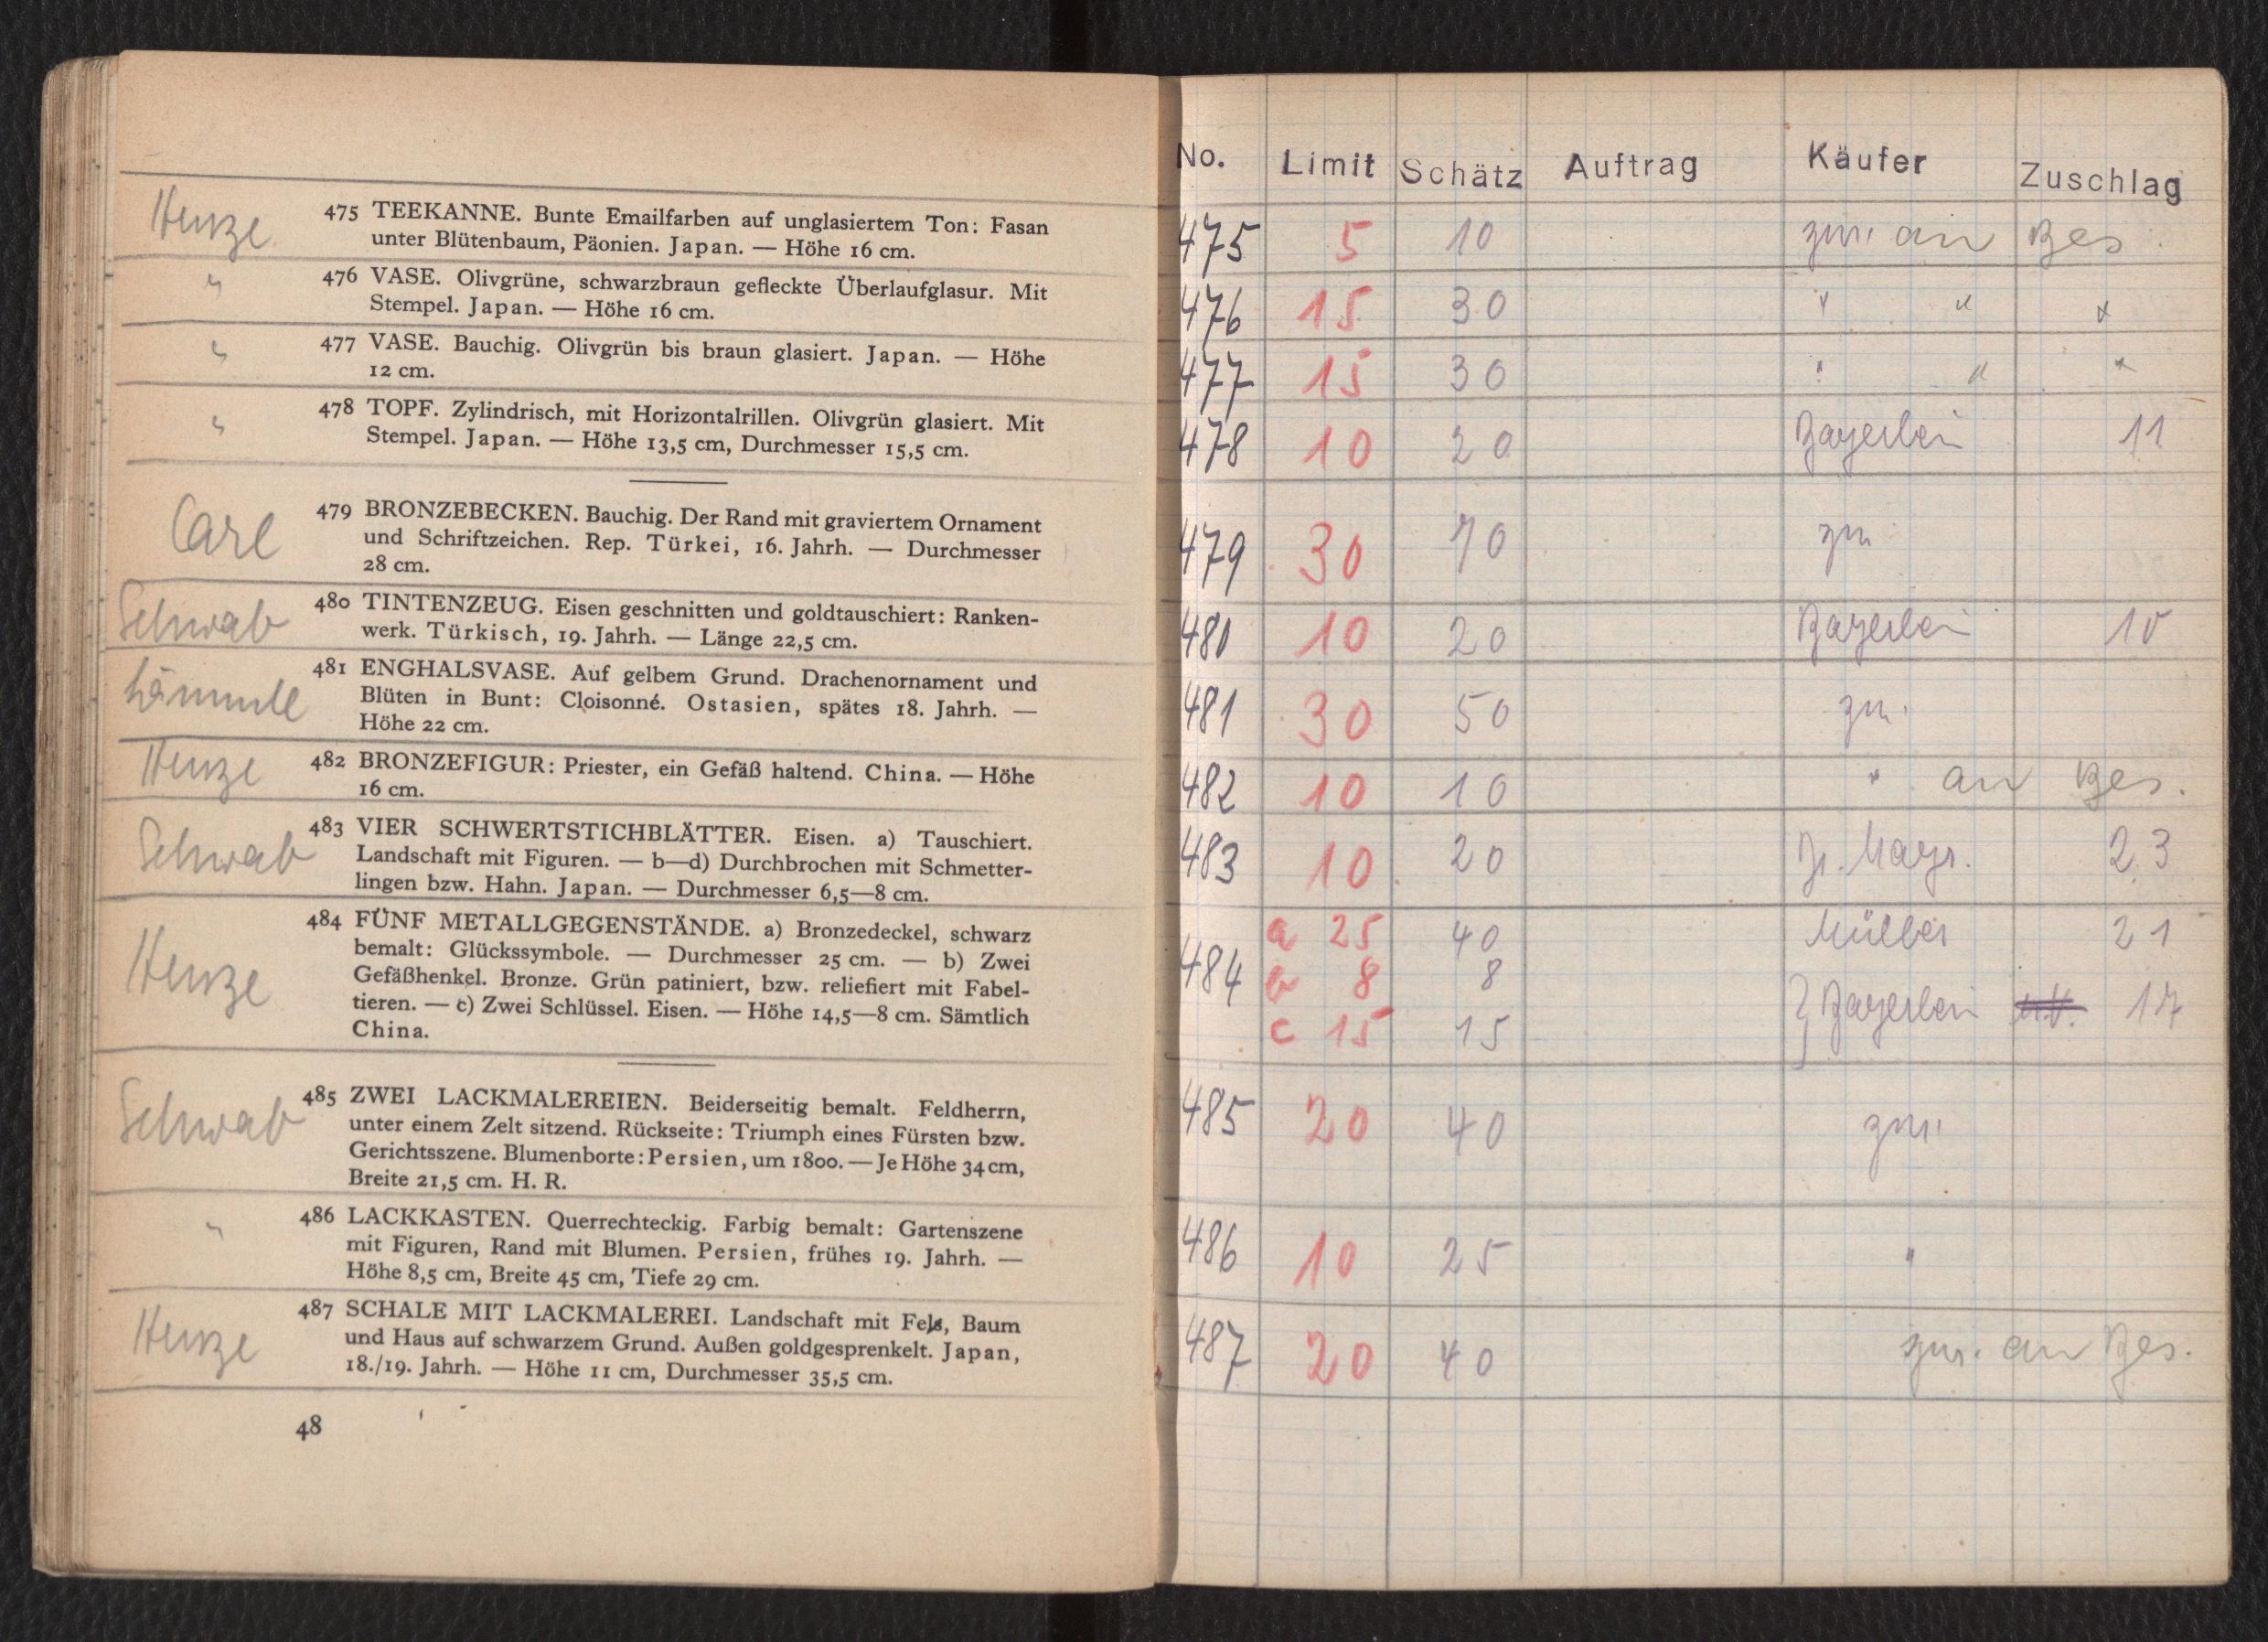 Henze
475 TEEKANNE. Bunte Emailfarben auf unglasiertem Ton: Fasan
unter Blütenbaum, Päonien. Japan. — Höhe 16 cm.
"
476 VASE. Olivgrüne, schwarzbraun gefleckte Überlaufglasur. Mit
Stempel. Japan. — Höhe 16 cm.
"
477 VASE. Bauchig. Olivgrün bis braun glasiert. Japan. — Höhe
12 cm.
"
478 TOPF. Zylindrisch, mit Horizontalrillen. Olivgrün glasiert. Mit
Stempel. Japan. — Höhe 13,5 cm, Durchmesser 15,5 cm.
Carl
479 BRONZEBECKEN. Bauchig. Der Rand mit graviertem Ornament
und Schriftzeichen. Rep. Türkei, 16. Jahrh. — Durchmesser
28 cm.
Schwab
480 TINTENZEUG. Eisen geschnitten und goldtauschiert: Ranken-
werk. Türkisch, 19. Jahrh. — Länge 22,5 cm.
Lämmle
481 ENGHALSVASE. Auf gelbem Grund. Drachenornament und
Blüten in Bunt: Cloisonné. Ostasien, spätes 18. Jahrh. —
Höhe 22 cm.
Henze
482 BRONZEFIGUR: Priester, ein Gefäß haltend. China. — Höhe
16 cm.
Schwab
483 VIER SCHWERTSTICHBLÄTTER. Eisen. a) Tauschiert.
Landschaft mit Figuren. — b—d) Durchbrochen mit Schmetter-
lingen bzw. Hahn. Japan. — Durchmesser 6,5—8 cm.
Henze
484 FÜNF METALLGEGENSTÄNDE. a) Bronzedeckel, schwarz
bemalt: Glückssymbole. — Durchmesser 25 cm. — b) Zwei
Gefäßhenkel. Bronze. Grün patiniert, bzw. reliefiert mit Fabel-
tieren. — c) Zwei Schlüssel. Eisen. — Höhe 14,5—8 cm. Sämtlich
China.
Schwab
485 ZWEI LACKMALEREIEN. Beiderseitig bemalt. Feldherrn,
unter einem Zelt sitzend. Rückseite: Triumph eines Fürsten bzw.
Gerichtsszene. Blumenborte: Persien, um 1800. — Je Höhe 34 cm,
Breite 21,5 cm. H. R.
"
486 LACKKASTEN. Querrechteckig. Farbig bemalt: Gartenszene
mit Figuren, Rand mit Blumen. Persien, frühes 19. Jahrh. —
Höhe 8,5 cm, Breite 45 cm, Tiefe 29 cm.
Henze
487 SCHALE MIT LACKMALEREI. Landschaft mit Fels, Baum
und Haus auf schwarzem Grund. Außen goldgesprenkelt. Japan,
18./19. Jahrh. — Höhe 11 cm, Durchmesser 35,5 cm.
48
No. Limit Schätz Auftrag Käufer Zuschlag
475 5 10 zur. an Bes.
476 15 30 " " "
477 15 30 " " "
478 10 20 Bayerlein 11
479 30 70 zur.
480 10 20 Bayerlein 10
481 30 50 zur.
482 10 10 " an Bes.
483 10 20 Mayr. 23
484 a 25 40 Müller 21
b 8 8
c 15 15 } Bayerlein 17
485 20 40 zur.
486 10 25 "
487 20 40 zur. an Bes.